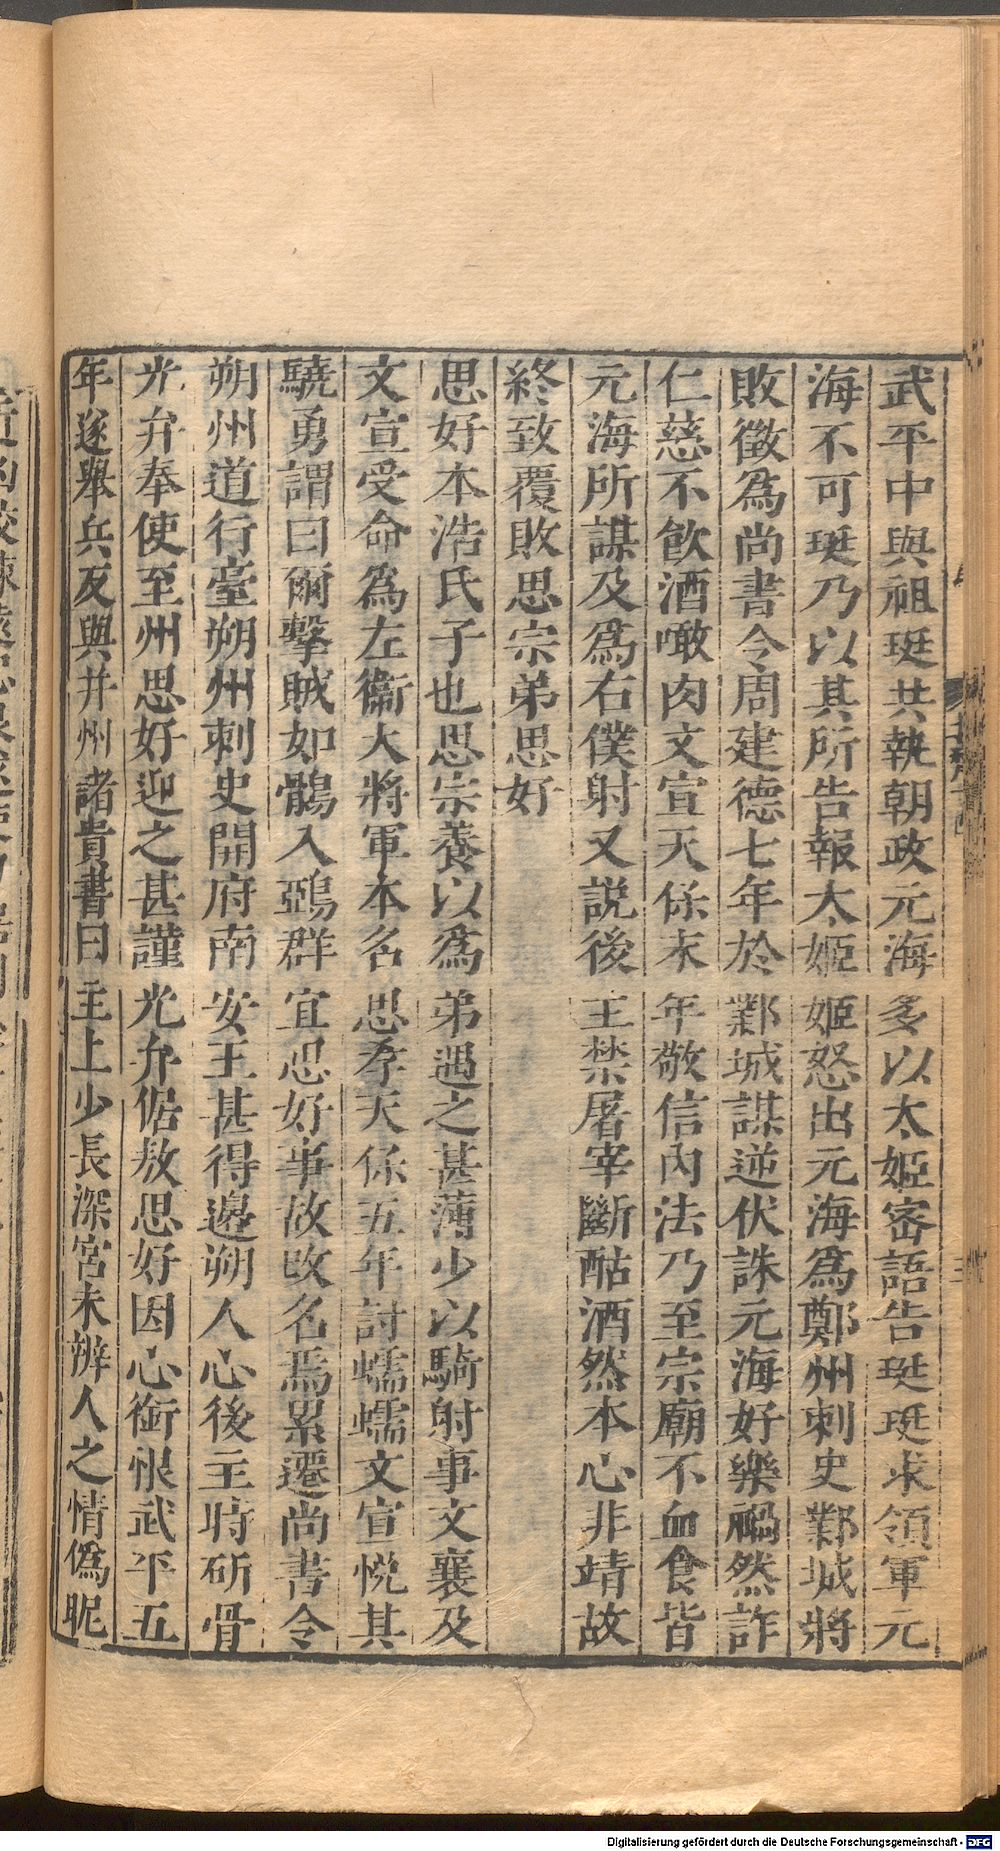 武平中與祖珽共執朝政元海多以太姬密語告珽珽求領軍元
海不可珽乃以其所告報太姬姬怒出元海爲鄭州刺史鄴城將
敗徵爲尚書令周建德七年於鄴城謀逆伏誅元海好樂禍然詐
仁慈不飲酒噉肉文宣天保末年敬信內法乃至宗廟不血食皆
元海所謀及爲右僕射又説後主禁屠宰斷酤酒然本心非靖故
終致覆敗思宗弟思好
思好本浩氏子也思宗養以爲弟遇之甚薄少以騎射事文襄及
文宣受命爲左衞大將軍本名思孝天保五年討蠕蠕文宣悅其
驍勇謂曰爾擊賊如鶻入鵶群宜思好事故改名焉累遷尚書令
朔州道行臺朔州刺史開府南安王甚得邊朔人心後主時斫骨
光弁奉使至州思好迎之甚謹光弁倨敖思好因心銜恨武平五
年遂舉兵反與并州諸貴書曰主上少長深宮未辨人之情僞昵
Digitalisierung gefördert durch die Deutsche Forschungsgemeinschaft - DFG